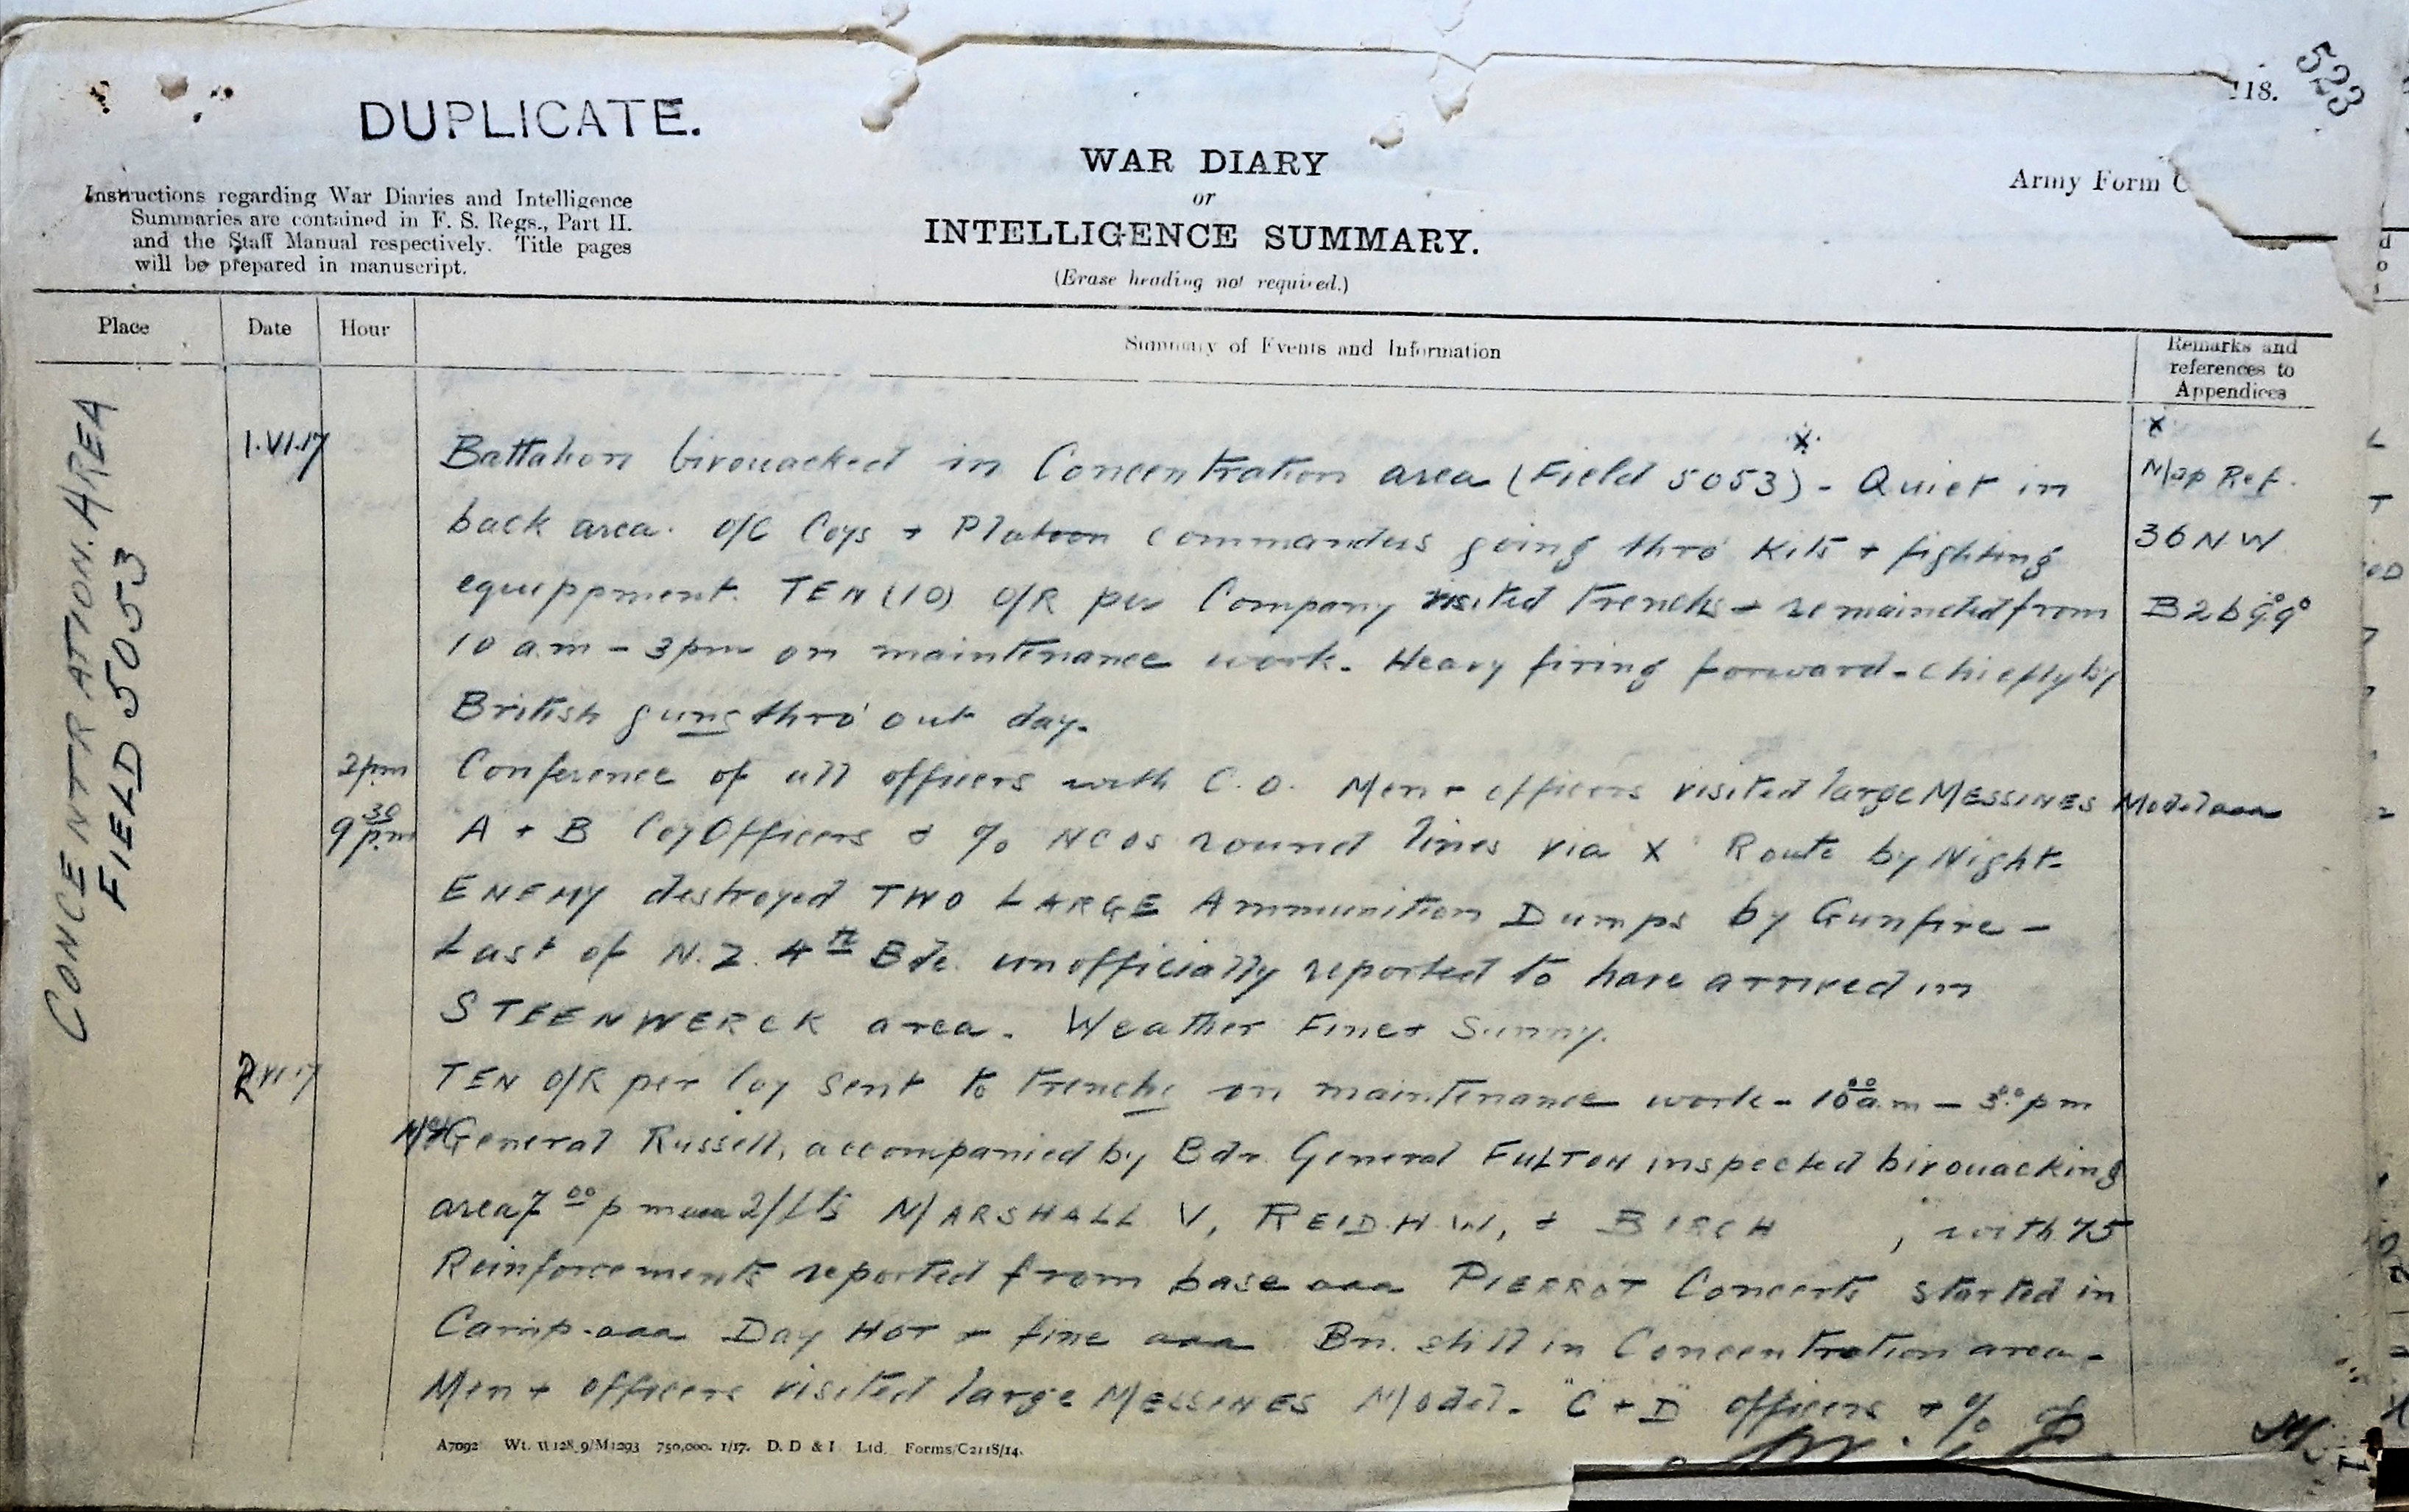 523
118.
DUPLICATE.
WAR DIARY
or
INTELLIGENCE SUMMARY.
(Erase heading not required.)
Army Form C
Instructions regarding War Diaries and Intelligence
Summaries are contained in F. S. Regs., Part II.
and the Staff Manual respectively. Title pages
will be prepared in manuscript.
Place Date Hour Summary of Events and Information Remarks and references to Appendices
CONCENTRATION. AREA
FIELD 5053
x
1.VI.17 Battalion bivouacked in Concentration area (Field 5053)x - Quiet in Map Ref.
back area. O/C Coys + Platoon Commanders going thro' Kits + fighting 36 N.W
equippment. TEN (10) O/R per Company visited trenchs + remainded from B2b 9°9°
10 a.m - 3pm on maintenance work. Heavy firing forward - chiefly by
British guns thro' out day.
2pm Conference of all officers with C.O. Men + officers visited large MESSINES Model aaa
9 30 pm A + B Coy Officers + % NCOs round lines via X Route by Night-
ENEMY destroyed TWO LARGE Ammunition Dumps by Gunfire -
Last of N.Z. 4th Bde. unofficially reported to have arrived in
STEENWERCK area. Weather Fine + Sunny.
2.VI.17 TEN O/R per Coy sent to trenchs on maintenance work - 10 00 a.m - 3 00 pm
General Russell, accompanied by Bdr. General FULTON inspected bivouacking
area 7 00 pm aaa 2/Lts MARSHALL V, REID. H.W, + BIRCH , with 75
Reinforcements reported from base aaa PIERROT Concerts started in
Camp. aaa Day HOT + fine aaa Bn. still in Concentration area -
Men + officers visited large MESSINES Model. "C + D" officers + % of
A7092 Wt. W128 9/M1293 750,000. 1/17. D. D & L Ltd. Forms/C2118/14.